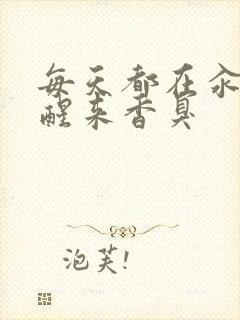 每天都在汆
醒来香臭
泡芙!